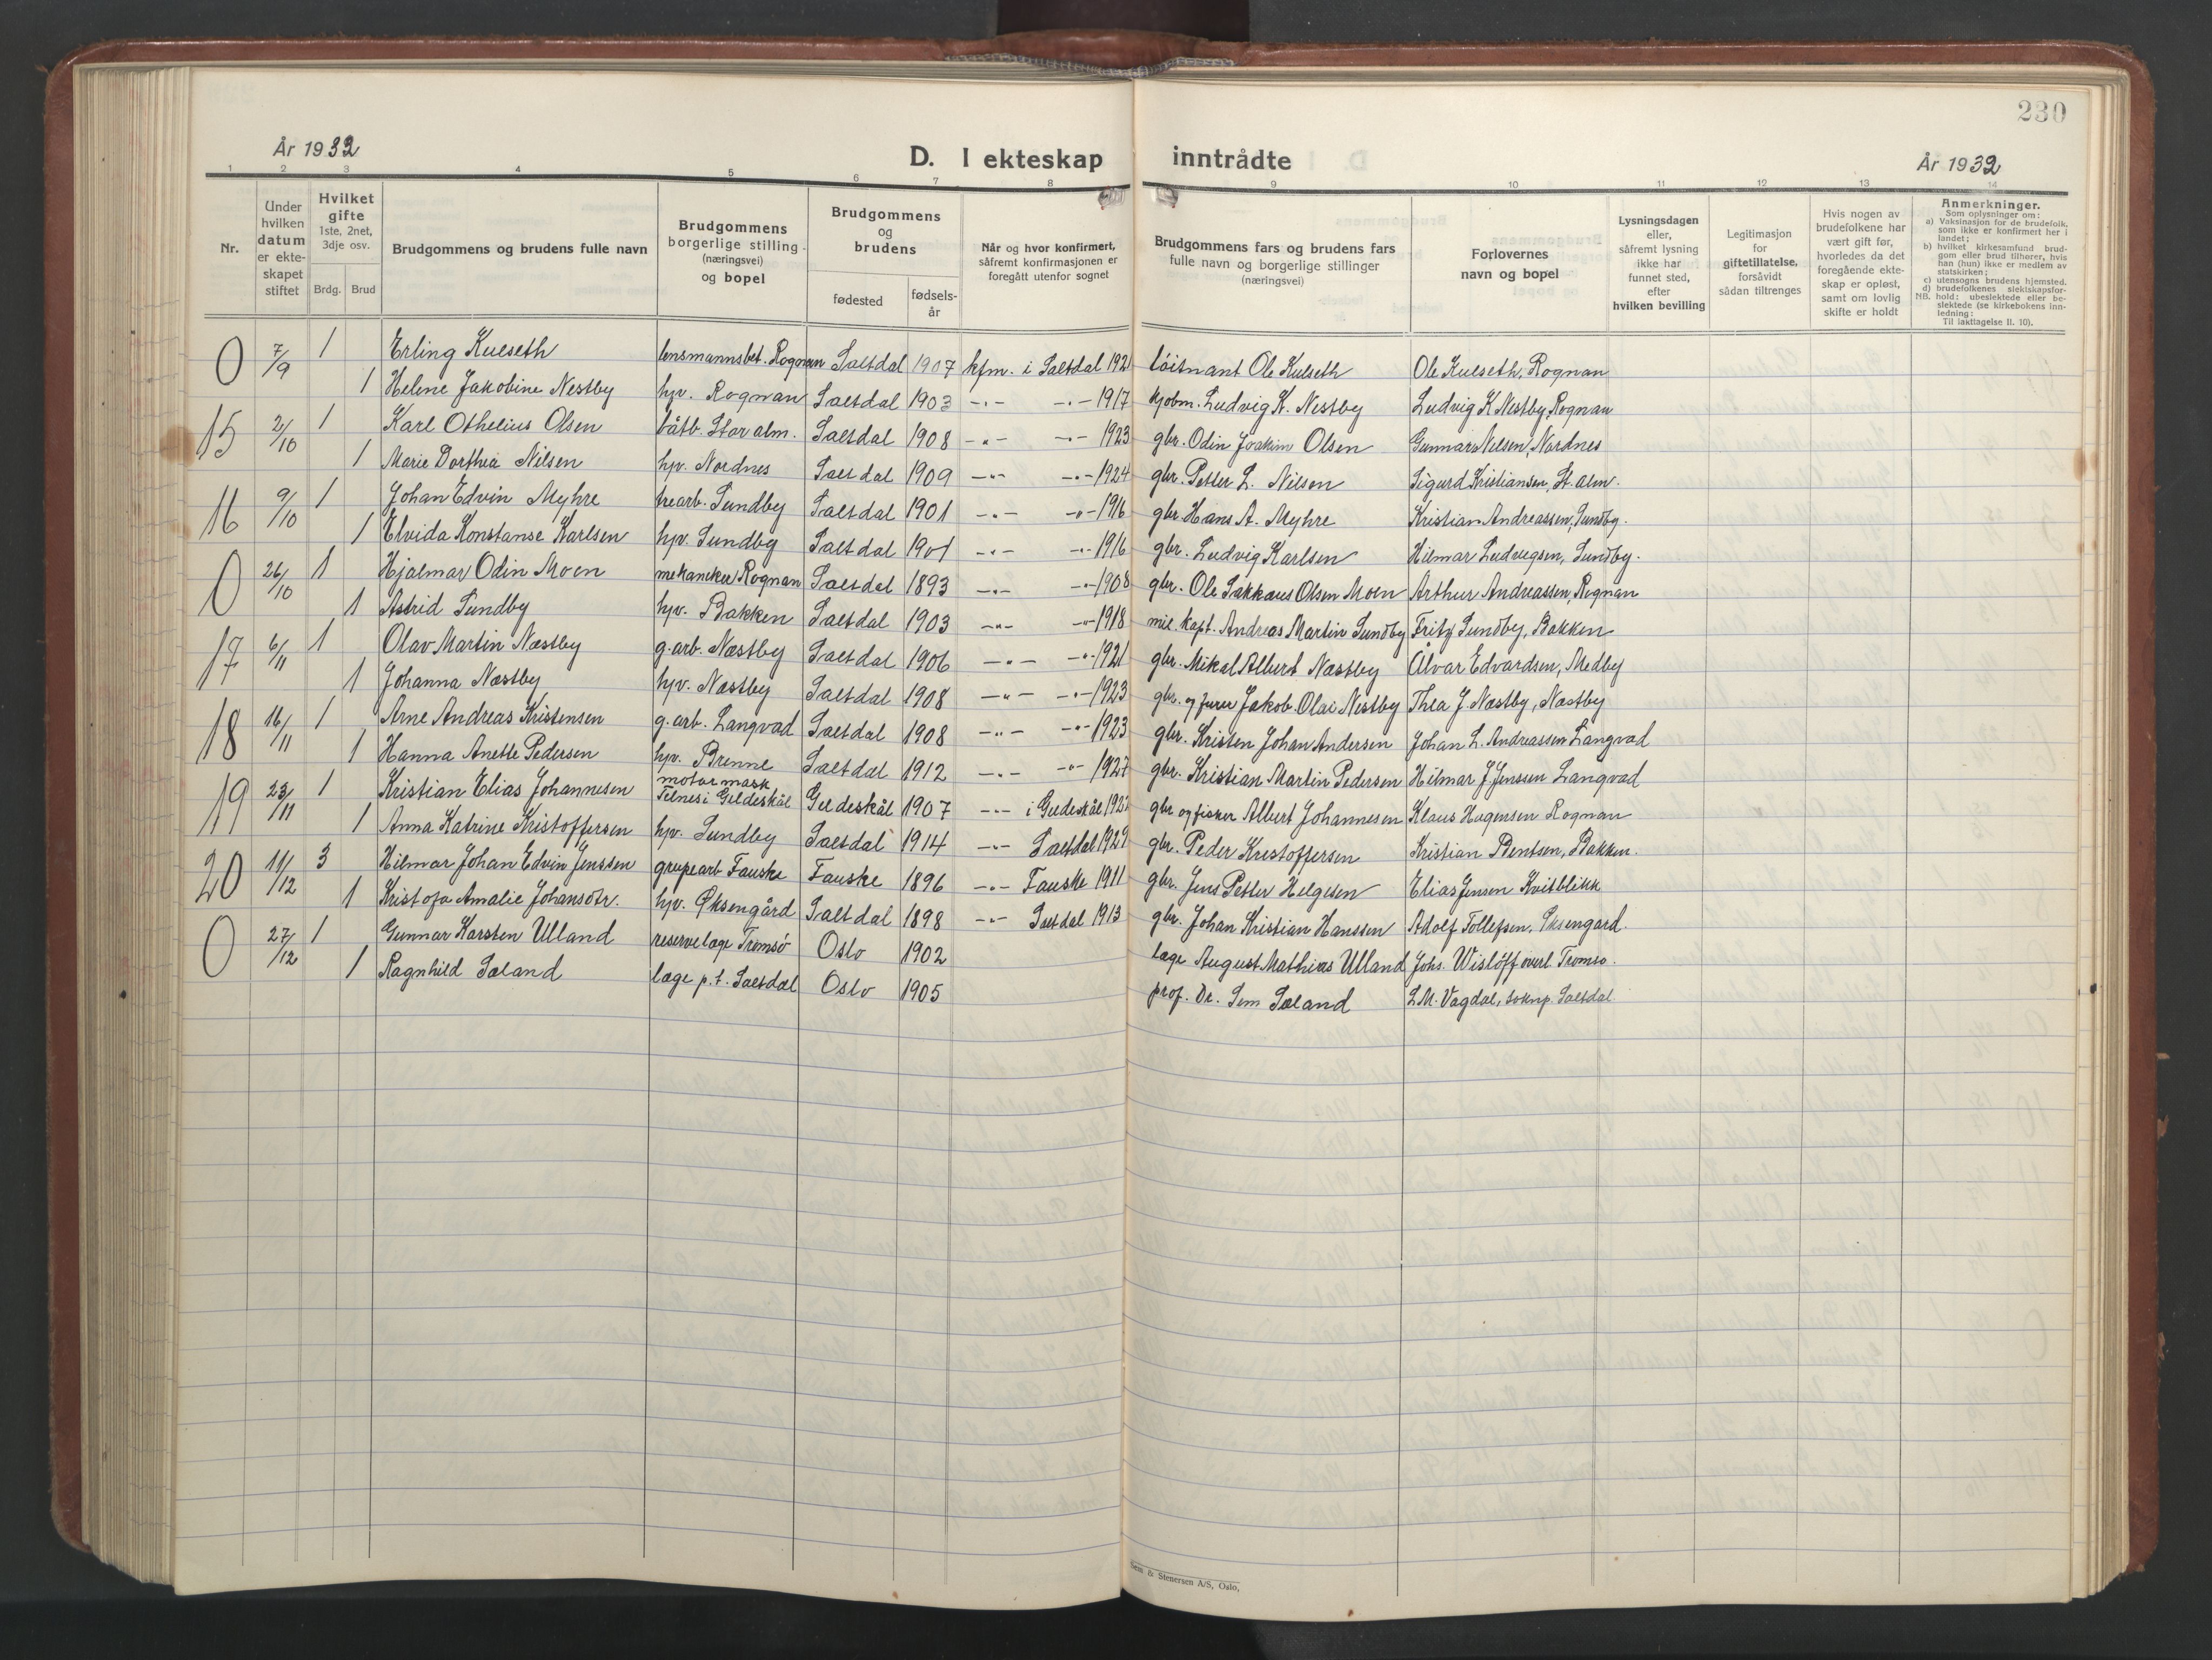 230
År 1932
D. I ekteskap inntrådte
År 1932
1 2 3 4 5 6 7 8 9 10 11 12 13 14
Nr.
Under hvilken datum er ekteskapet stiftet
Hvilket gifte 1ste, 2net, 3dje osv.
Brdg. Brud
Brudgommens og brudens fulle navn
Brudgommens borgerlige stilling (næringsvei) og bopel
Brudgommens og brudens
fødested
fødselsår
Når og hvor konfirmert, såfremt konfirmasjonen er foregått utenfor sognet
Brudgommens fars og brudens fars fulle navn og borgerlige stillinger (næringsvei)
Forlovernes navn og bopel
Lysningsdagen eller, såfremt lysning ikke har funnet sted, efter hvilken bevilling
Legitimasjon for giftetillatelse, forsåvidt sådan tiltrenges
Hvis nogen av brudefolkene har vært gift før, hvorledes da det foregående ekteskap er opløst, samt om lovlig skifte er holdt
Anmerkninger.
Som oplysninger om:
a) Vaksinasjon for de brudefolk, som ikke er konfirmert her i landet;
b) hvilket kirkesamfund brudgom eller brud tilhører, hvis han (hun) ikke er medlem av statskirken;
c) utensogns brudens hjemsted.
d) brudefolkenes slektskapsforhold: ubeslektede eller beslektede (se kirkebokens innledning:
NB. Til iakttagelse II. 10).
0 7/9 1 Erling Kulseth lensmannsbet. Rognan Saltdal 1907 kfm. i Saltdal 1921 löitnant Ole Kulseth Ole Kulseth, Rognan
1 Helene Jakobine Nestby hjv. Rognan Saltdal 1903 -"- -"- 1917 kjøbm. Ludvig K. Nestby Ludvig K Nestby, Rognan
15 2/10 1 Karl Othelius Olsen båtb. Storalm. Saltdal 1908 -"- -"- 1923 gbr. Odin Joakim Olsen Gunnar Nilsen, Nordnes
1 Marie Dorthea Nilsen hjv. Nordnes Saltdal 1909 -"- -"- 1924 gbr. Petter L. Nilsen Sigurd Kristiansen, St. alm.
16 9/10 1 Johan Edvin Myhre trearb. Sundby Saltdal 1901 -"- -"- 1916 gbr. Hans A. Myhre Kristian Andreassen, Sundby.
1 Elvida Konstanse Karlsen hjv. Sundby Saltdal 1901 -"- -"- 1916 gbr. Ludvig Karlsen Hilmar Ludvigsen, Sundby.
0 26/10 1 Hjalmar Odin Moen mekaniker Rognan Saltdal 1893 -"- -"- 1908 gbr. Ole Sakkæus Olsen Moen Arthur Andreassen, Rognan
1 Astrid Sundby hjv. Bakken Saltdal 1903 -"- -"- 1918 mil. kapt. Andreas Martin Sundby Fritz Sundby, Bakken
17 6/11 1 Olav Martin Næstby g.arb. Næstby Saltdal 1906 -"- -"- 1921 gbr. Mikal Albert Næstby Alvar Edvardsen, Medby
1 Johanna Næstby hjv. Næstby Saltdal 1908 -"- -"- 1923 gbr. og furer Jakob Olai Nestby Thea J. Næstby, Næstby
18 16/11 1 Arne Andreas Kristensen g.arb. Langvad Saltdal 1908 -"- -"- 1923 gbr. Kristen Johan Andersen Johan L. Andreassen Langvad
1 Hanna Anette Pedersen hjv. Brenne Saltdal 1912 -"- -"- 1927 gbr. Kristian Martin Pedersen Hilmar J. Jensen Langvad
19 23/11 1 Kristian Elias Johannesen motormask Gildeskål 1907 -"- i Gildeskål gbr og fisker Albert Johannesen Klaus Hagensen Rognan
1 Anna Katrine Kristoffersen hjv. Sundby Saltdal 1914 -"- Saltdal 1929 gbr. Peder Kristoffersen Kristian Bentsen, Bakken.
20 11/12 3 Hilmar Johan Edvin Jenssen grupearb Fauske Fauske 1896 -"- Fauske 1911 gbr. Jens Petter Helgesen Elias Jensen Kvitblikk
1 Kristofa Amalie Johansdtr. hjv. Øksengård Saltdal 1898 -"- Saltdal 1913 gbr. Johan Kristian Hanssen Adolf Tollefsen, Øksengard.
0 27/12 1 Gunnar Karsten Ulland reservelæge Tromsø Oslo 1902 læge August Mathias Ulland Johs. Wislöff overl. Tromsø.
1 Ragnhild Sæland læge p.t. Saltdal Oslo 1905 prof. Dr. Sem Sæland L.M. Vagdal, soknp. Saltdal
Sem & Stenersen A/S, Oslo,